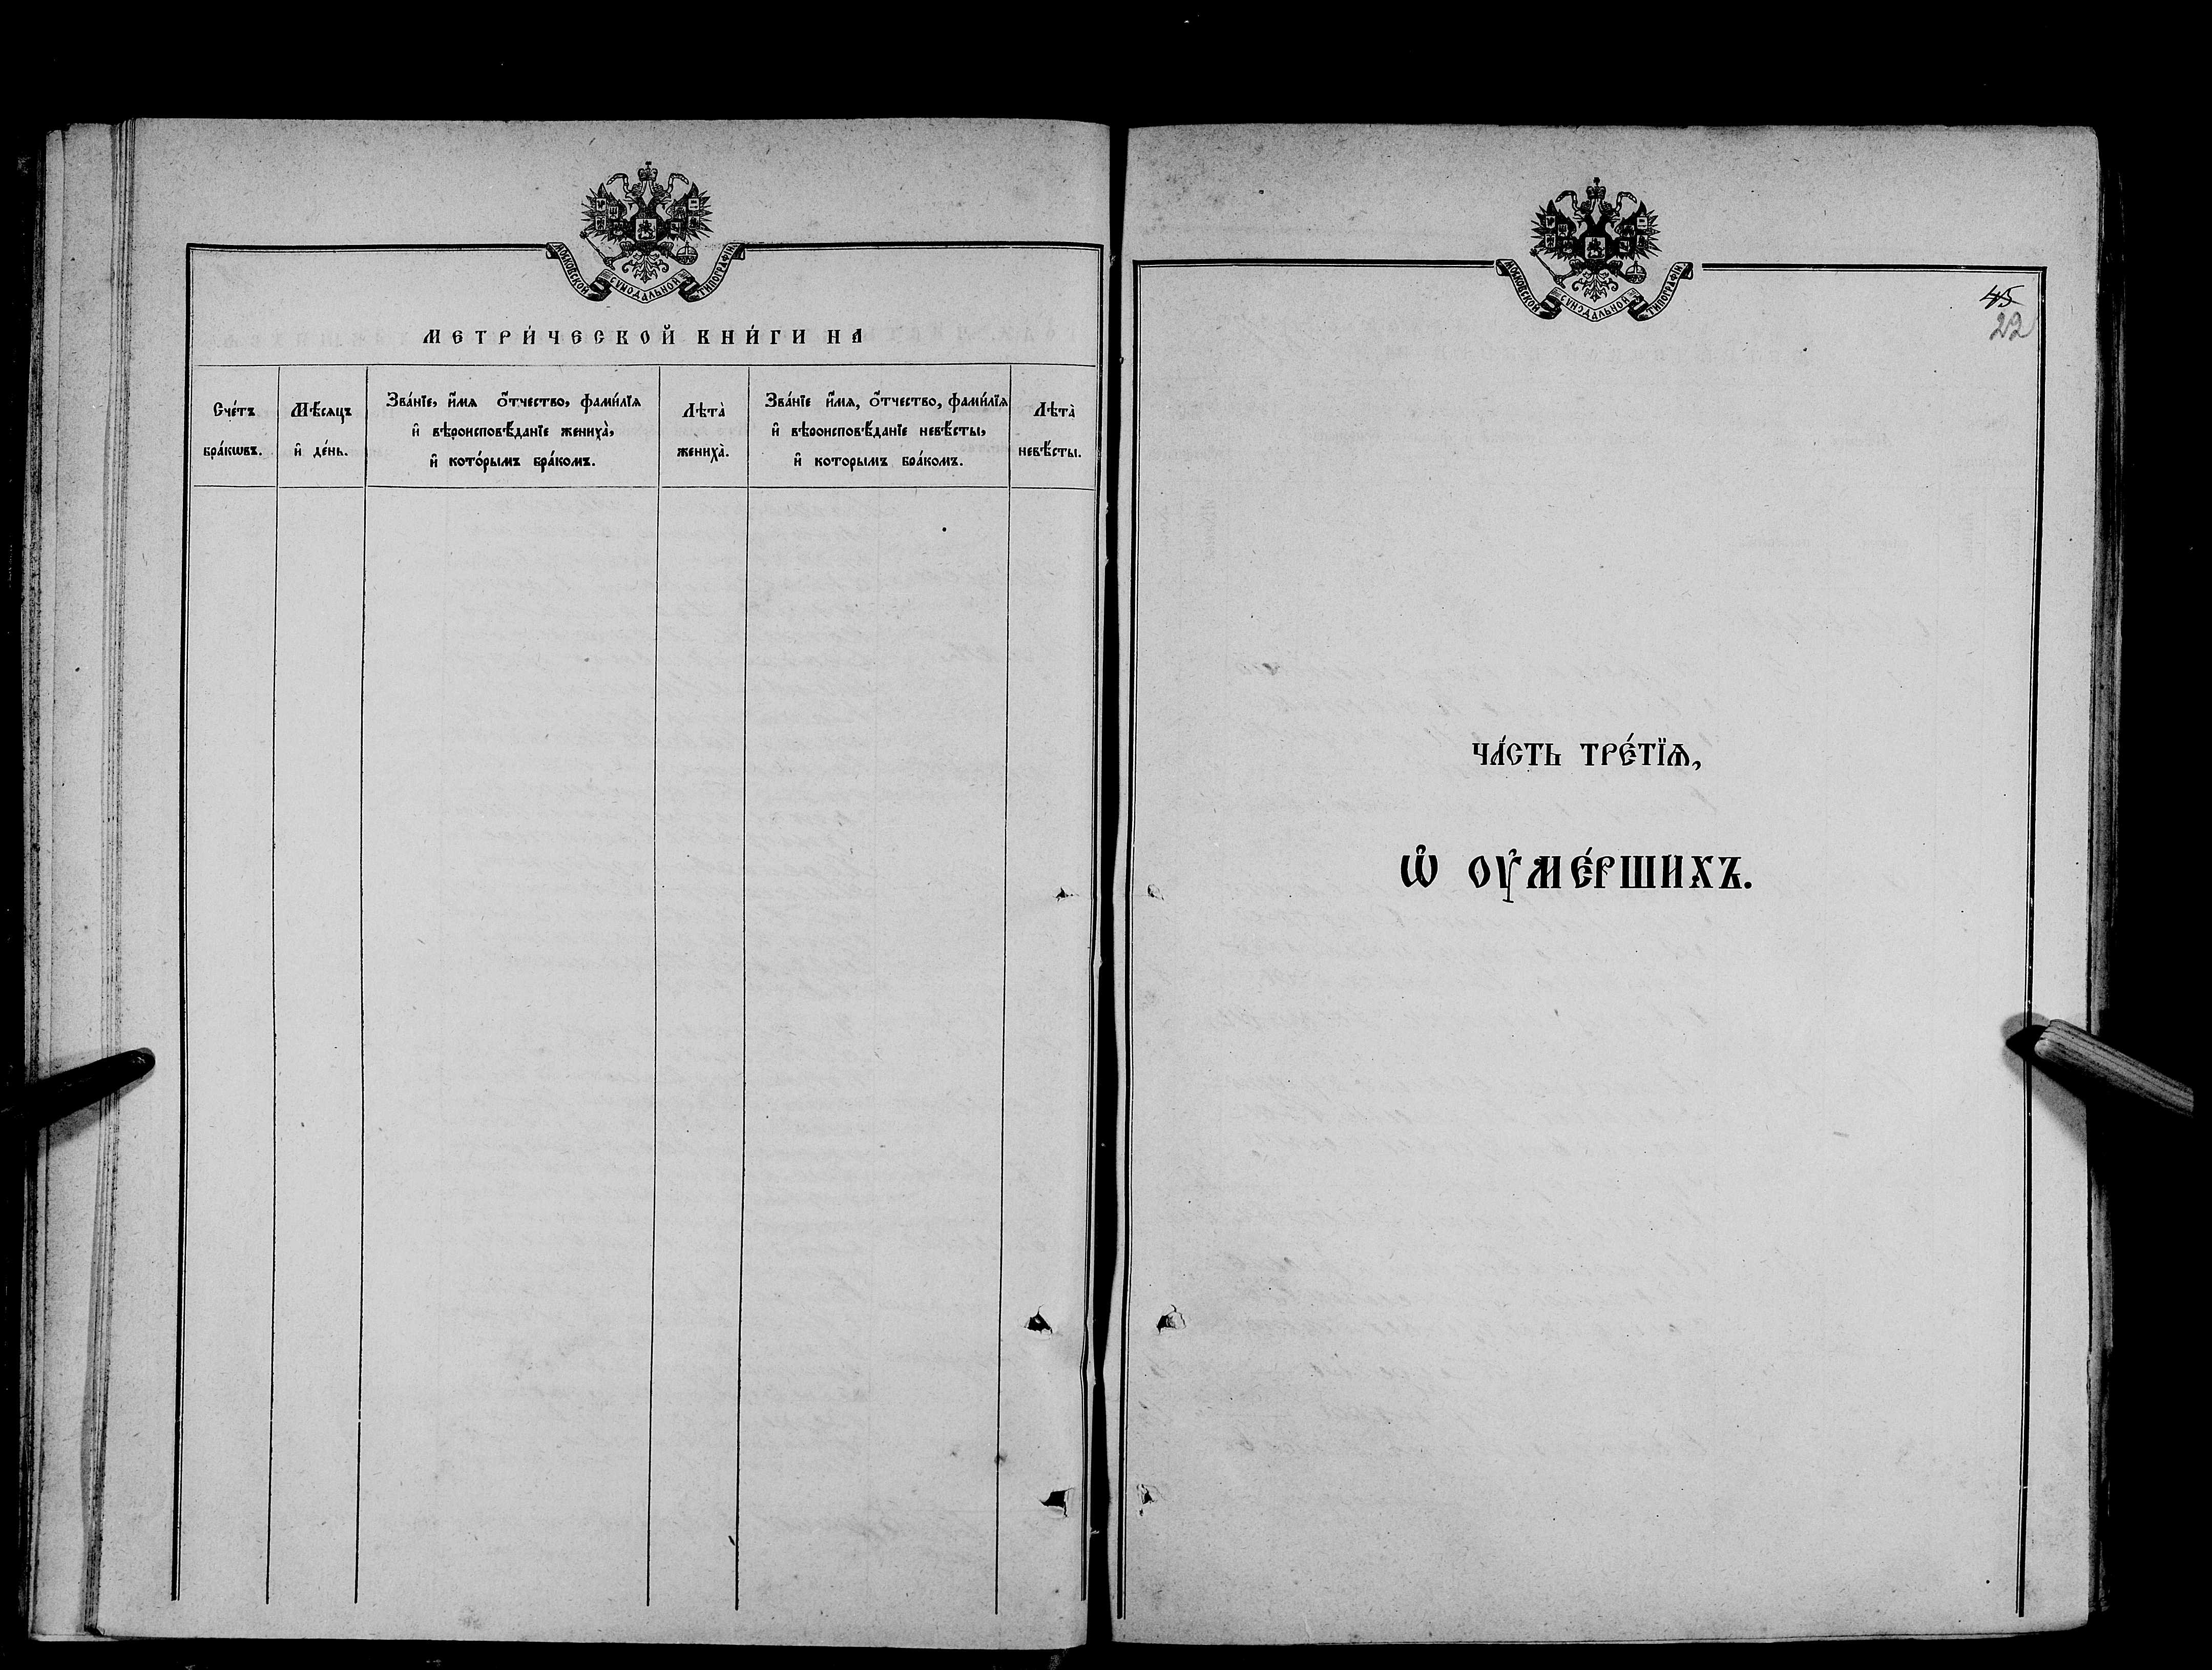 МОСКОВСКОЙ СѴНОДАЛЬНОЙ ТИПОГРАФІИ
МЕТРИ́ЧЕСКОЙ КНИ́ГИ НА
Сче́тъ
бра́кѡвъ.
Мѣ́сяцъ
и҆ де́нь.
Зва́нїе, и҆́мя ѻ҆́тчество, фами́лїя
и҆ вѣроисповѣ́данїе жениха̀,
и҆ кото́рымъ бра́комъ.
Лѣта̀
жениха̀.
Зва́нїе и҆́мя, ѻ҆́тчество, фами́лїя
и҆ вѣроисповѣ́данїе невѣ́сты,
и҆ которымъ бра́комъ.
Лѣта̀
невѣ́сты.
МОСКОВСКОЙ СѴНОДАЛЬНОЙ ТИПОГРАФІИ
45
22
ЧА́СТЬ ТРЕ́ТЇѦ,
Ѡ҆ ОУ҆МЕ́РШИХЪ.